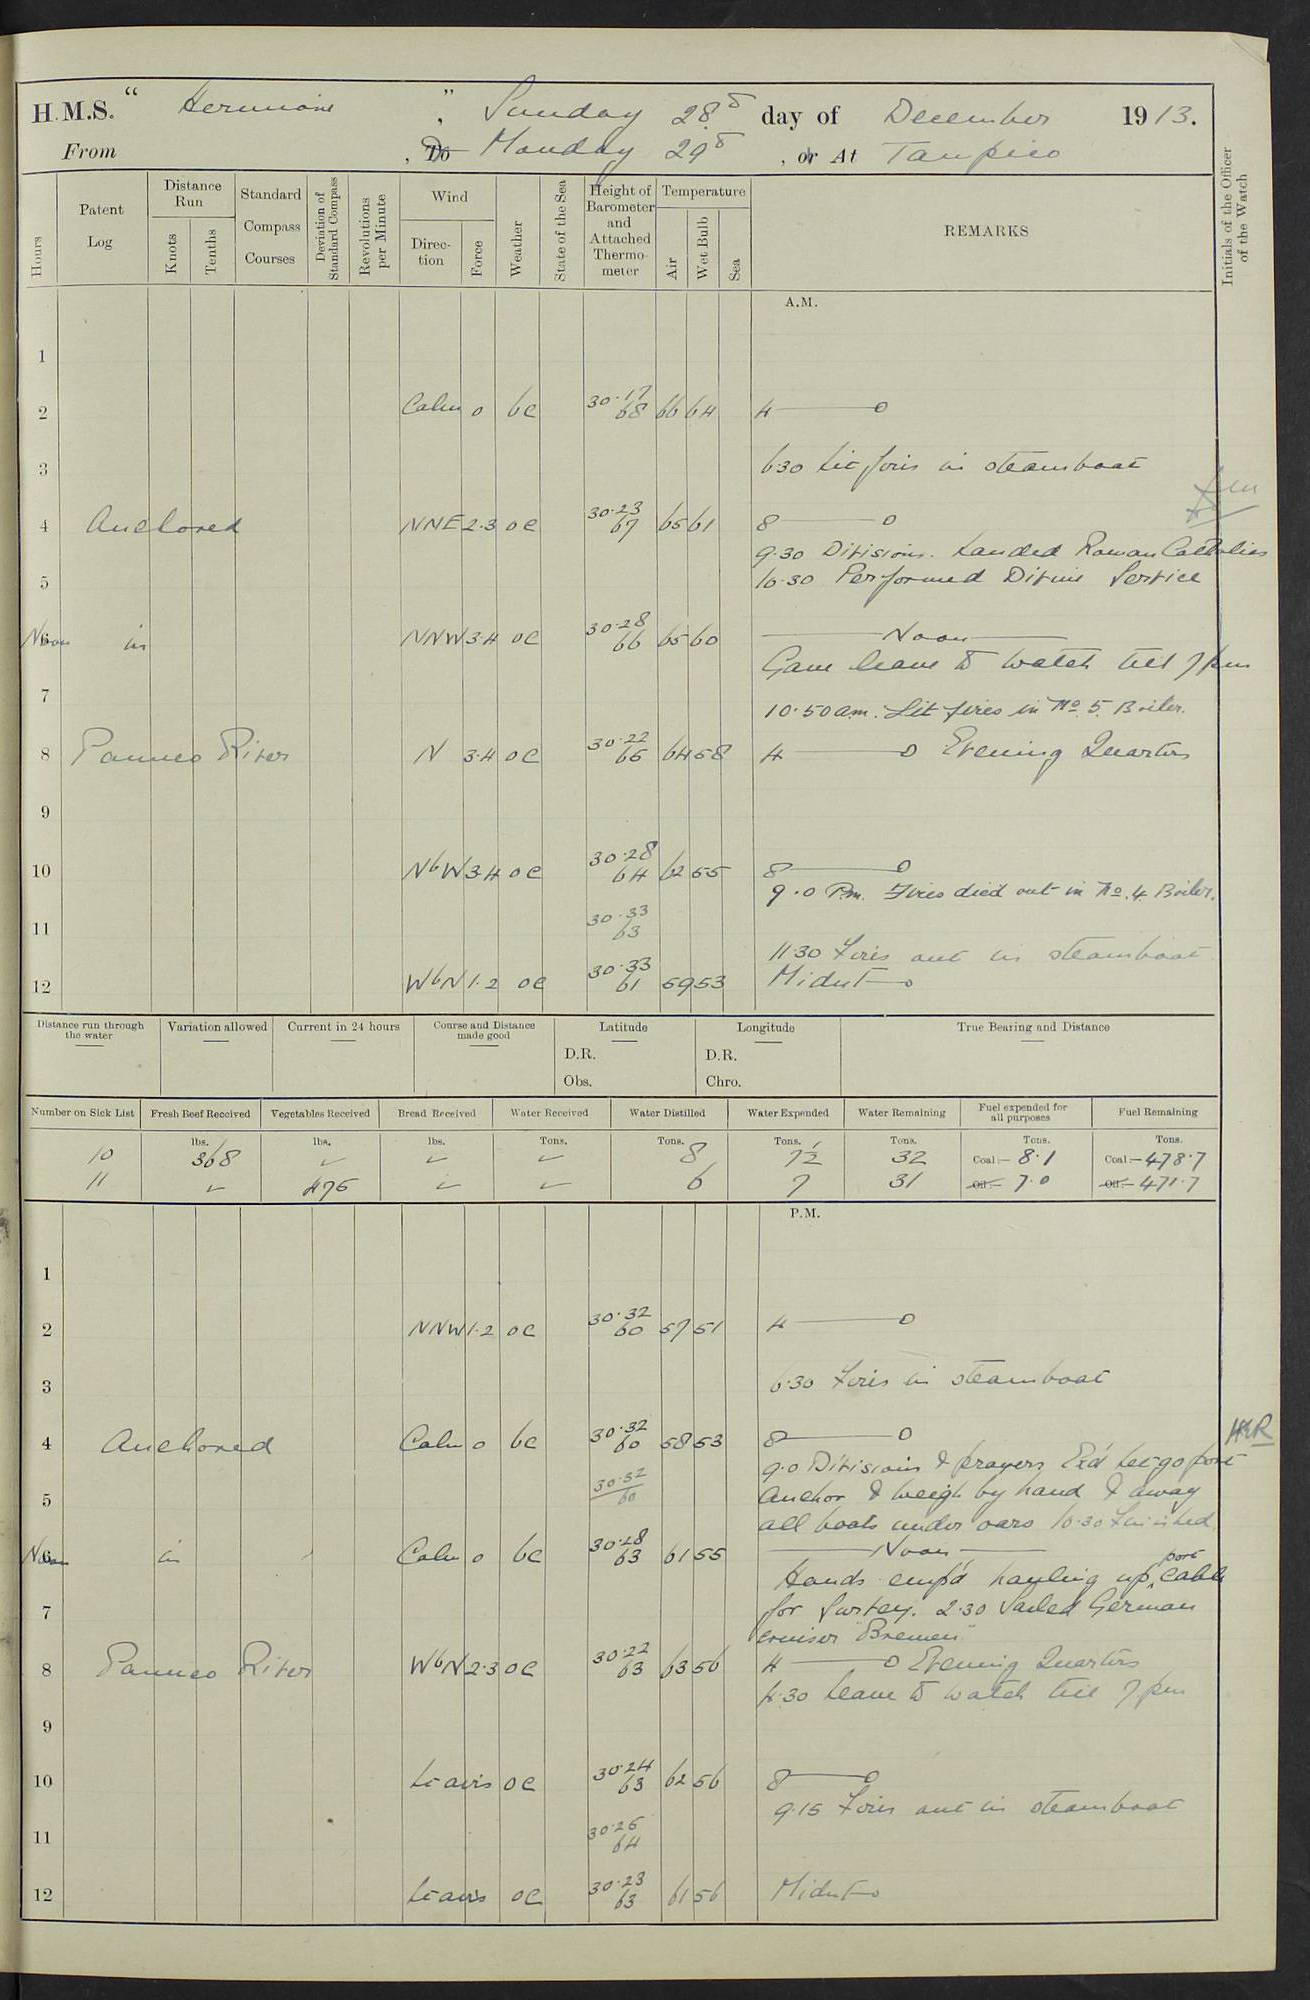 H.M.S. " Hermione ", Sunday 28th day of December 1913.
From , To Monday 29th , or At Tampico
Hours
Patent Log
Distance Run
Knots
Tenths
Standard Compass Courses
Deviation of Standard Compass
Revolutions per Minute
Wind
Direction
Force
Weather
State of the Sea
Height of Barometer and Attached Thermometer
Temperature
Air
Wet Bulb
Sea
REMARKS
Initials of the Officer of the Watch
A.M.
1
2 Calm 0 bc 30.17 68 66 64 4 —— 0
3 630 Lit fires in steamboat
4 Anchored NNE 2.3 oc 30.23 67 65 61 8 —— 0
9.30 Divisions. Landed Roman Catholics
5 10.30 Performed Divine Service
6 Noon in NNW 3.4 oc 30.28 66 65 60 —— Noon ——
Gave leave to watch till 7 pm
7 10.50 am. Lit fires in No. 5. Boiler.
8 Panuco River N 3.4 oc 30.22 65 64 58 4 —— 0 Evening Quarters
9
10 NbW 3.4 oc 30.28 64 62 55 8 —— 0
9.0 P.m. Fires died out in No. 4. Boiler.
11 30.33 63
11.30 Fires out in steamboat
12 WbN 1.2 oc 30.33 61 59 53 Midnt —— 0
Distance run through the water
Variation allowed
Current in 24 hours
Course and Distance made good
Latitude
D.R.
Obs.
Longitude
D.R.
Chro.
True Bearing and Distance
Number on Sick List
Fresh Beef Received
Vegetables Received
Bread Received
Water Received
Water Distilled
Water Expended
Water Remaining
Fuel expended for all purposes
Fuel Remaining
lbs. lbs. lbs. Tons. Tons. Tons. Tons. Tons. Tons.
10 368 ✓ ✓ ✓ 8 7½ 32 Coal:— 8.1 Coal:— 478.7
11 ✓ 475 ✓ ✓ 6 7 31 Oil:— 7.0 Oil:— 471.7
P.M.
1
2 NNW 1.2 oc 30.32 60 57 51 4 —— 0
3 6.30 Fires in steamboat
4 Anchored Calm 0 bc 30.32 60 58 53 8 —— 0
HR
9.0 Divisions & prayers Ex'd let go port
30.32 60
5 Anchor & weigh by hand & away
all boats under oars 10.30 Finished
6 Noon in Calm 0 bc 30.28 63 61 55 —— Noon ——
Hands emp'd hauling up port Cable
7 for Survey. 2.30 Sailed German
cruiser "Bremen"
8 Panuco River WbN 2.3 oc 30.22 63 63 56 4 —— 0 Evening Quarters
4.30 Leave to watch till 7 pm
9
10 Lt airs oc 30.24 63 62 56 8 —— 0
9.15 Fires out in steamboat
11 30.25 64
12 Lt airs oc 30.23 63 61 56 Midnt —— 0